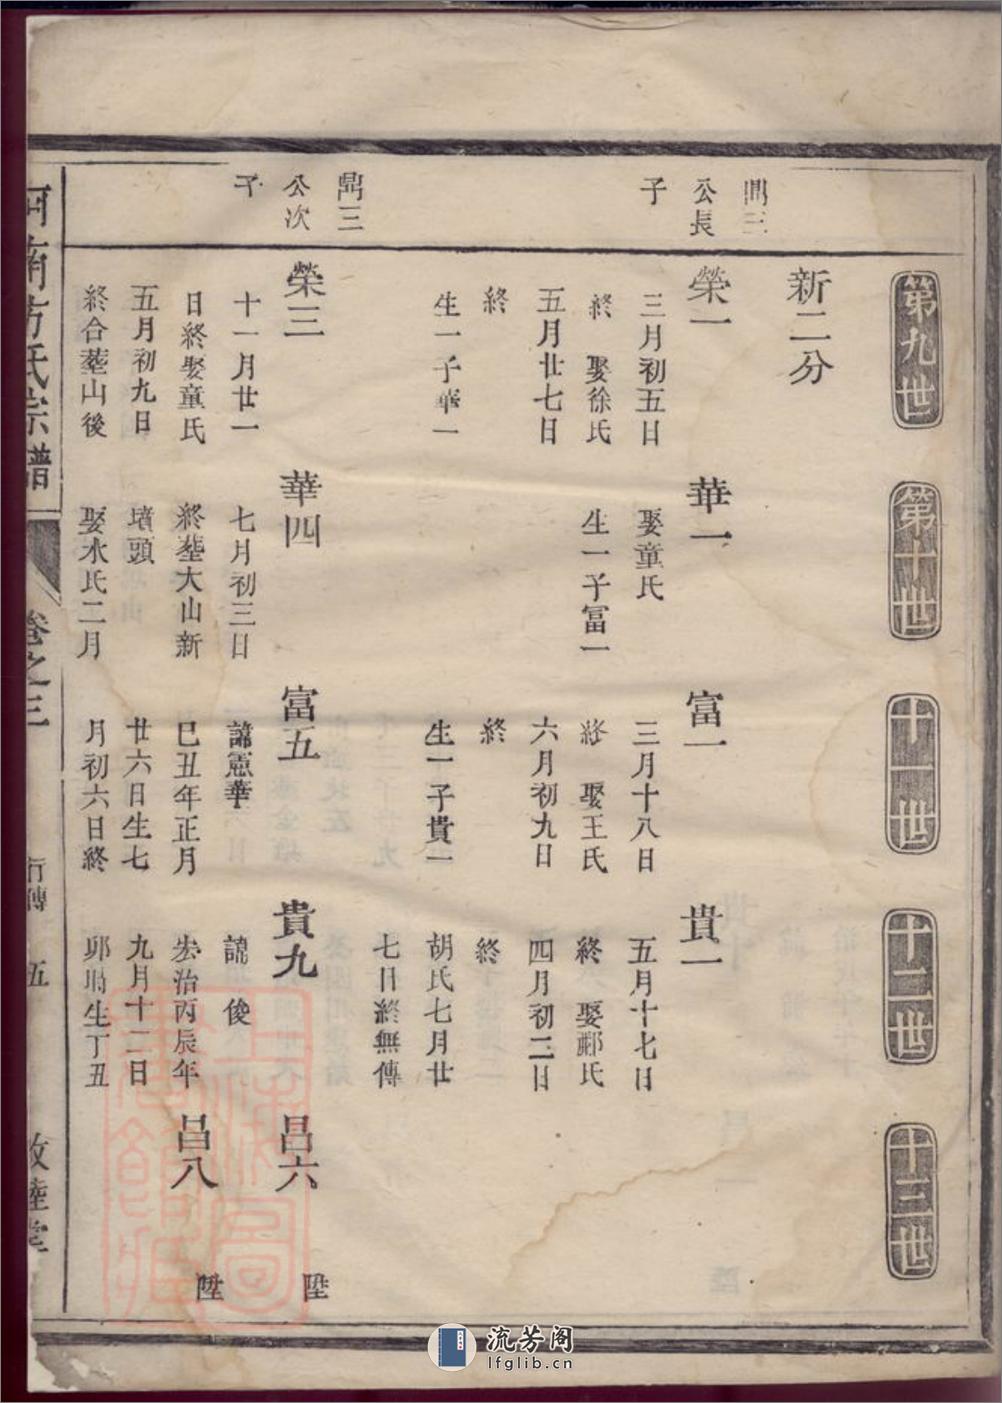 第九世
第十世
十一世
十二世
十三世
新二分
鼎三
公長
子
榮一
三月初五日
終 娶徐氏
五月廿七日
終
生一子華一
華一
娶童氏
生一子富一
富一
三月十八日
終 娶王氏
六月初九日
終
生一子貴一
貴一
五月十七日
終 娶郝氏
四月初二日
終
胡氏七月廿
七日終無傳
鼎三
公次
子
榮三
十一月廿一
日終娶童氏
五月初九日
終合塟山後
華四
七月初三日
終塟大山新
墳頭
娶水氏二月
富五
諱憲華
巳丑年正月
廿六日生七
月初六日終
貴九
諱俊
宏治丙辰年
九月十二日
卯時生丁丑
昌六
陞
昌八
陞
河南方氏宗譜
卷之三
行傳
五
敦睦堂
流芳阁
lfglib.cn